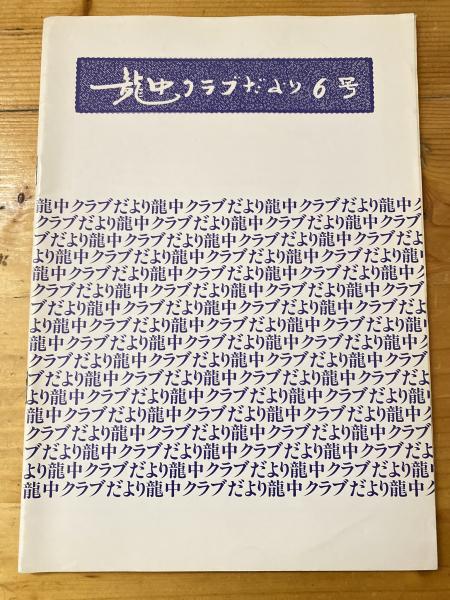 龍中クラブだより6号
龍中クラブだより龍中クラブだより龍中クラブだより龍中ク
クラブだより龍中クラブだより龍中クラブだより龍中クラブ
ブだより龍中クラブだより龍中クラブだより龍中クラブだよ
より龍中クラブだより龍中クラブだより龍中クラブだより
龍中クラブだより龍中クラブだより龍中クラブだより龍中ク
クラブだより龍中クラブだより龍中クラブだより龍中クラブ
ブだより龍中クラブだより龍中クラブだより龍中クラブだよ
より龍中クラブだより龍中クラブだより龍中クラブだより
龍中クラブだより龍中クラブだより龍中クラブだより龍中ク
クラブだより龍中クラブだより龍中クラブだより龍中クラブ
ブだより龍中クラブだより龍中クラブだより龍中クラブだよ
より龍中クラブだより龍中クラブだより龍中クラブだより
龍中クラブだより龍中クラブだより龍中クラブだより龍中ク
クラブだより龍中クラブだより龍中クラブだより龍中クラブ
ブだより龍中クラブだより龍中クラブだより龍中クラブだよ
より龍中クラブだより龍中クラブだより龍中クラブだより
龍中クラブだより龍中クラブだより龍中クラブだより龍中ク